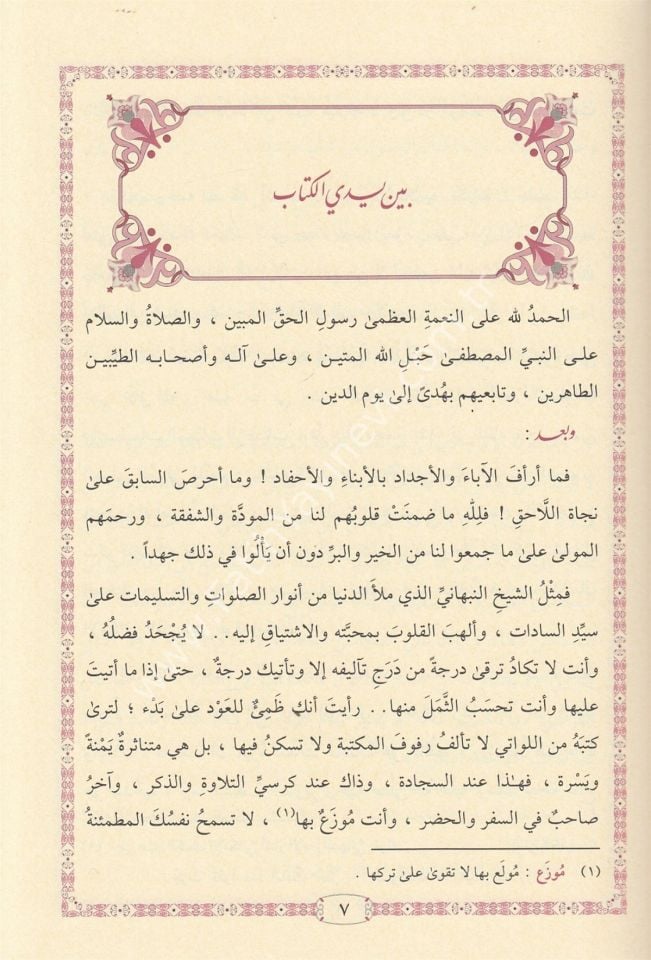 بين يدي الكتاب
الحمدُ لله على النعمةِ العظمىٰ رسولِ الحقِّ المبين ، والصلاةُ والسلام
علـى النبـيِّ المصطفـىٰ حَبْـلِ الله المتيـن ، وعلـىٰ آلـه وأصحابـه الطيِّبيـن
الطاهرين ، وتابعيهم بهُدىً إلىٰ يوم الدين .
وبعد :
فما أرأفَ الآباءَ والأجداد بالأبناءِ والأحفاد ! وما أحرصَ السابق علىٰ
نجاة اللَّاحقِ ! فلِلّهِ ما ضمنَتْ قلوبُهم لنا من المودَّة والشفقة ، ورحمَهم
المولىٰ علىٰ ما جمعوا لنا من الخير والبرِّ دون أن يَأْلُوا في ذلك جهداً .
فمِثْلُ الشيخِ النبهانيِّ الذي ملأَ الدنيا من أنوار الصلواتِ والتسليمات علىٰ
سيِّدِ السادات ، وألهبَ القلوبَ بمحبَّته والاشتياقِ إليه.. لا يُجْحَدُ فضلُهُ ،
وأنت لا تكادُ ترقىٰ درجةً من دَرَجِ تآليفه إلا وتأتيك درجةٌ ، حتىٰ إذا ما أتيتَ
عليها وأنت تحسَبُ الثَّمَلَ منها.. رأيتَ أنك ظَمِئٌ للعَوْد علىٰ بَدْء ؛ لترىٰ
كتبَهُ من اللواتي لا تألفُ رفوفَ المكتبة ولا تسكنُ فيها ، بل هي متناثرةٌ يَمْنةً
ويَسْرة ، فهـٰذا عند السجادة ، وذاك عند كرسيِّ التلاوةِ والذكر ، وآخرُ
صاحبٌ في السفر والحضر ، وأنت مُوزَعٌ بها(١) ، لا تسمحُ نفسُكَ المطمئنةُ
(١) مُوزَع : مُولَع بها لا تقوىٰ علىٰ تركها .
٧